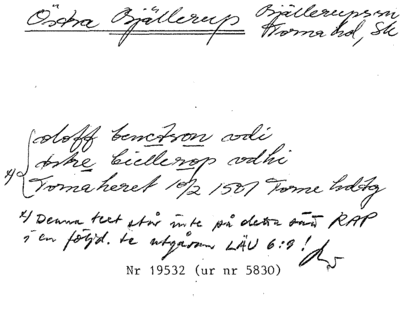 Östra Bjällerup Bjällerups sn
Torna hd, Sk
oloff benctson vdi
østre biellerop vdhi
x) Torna heret 10/2 1507 Torne hdtg
x) Denna text står inte på detta sätt RAP
i en följd. Se utgåvan LÄU 6:9!
Nr 19532 (ur nr 5830)